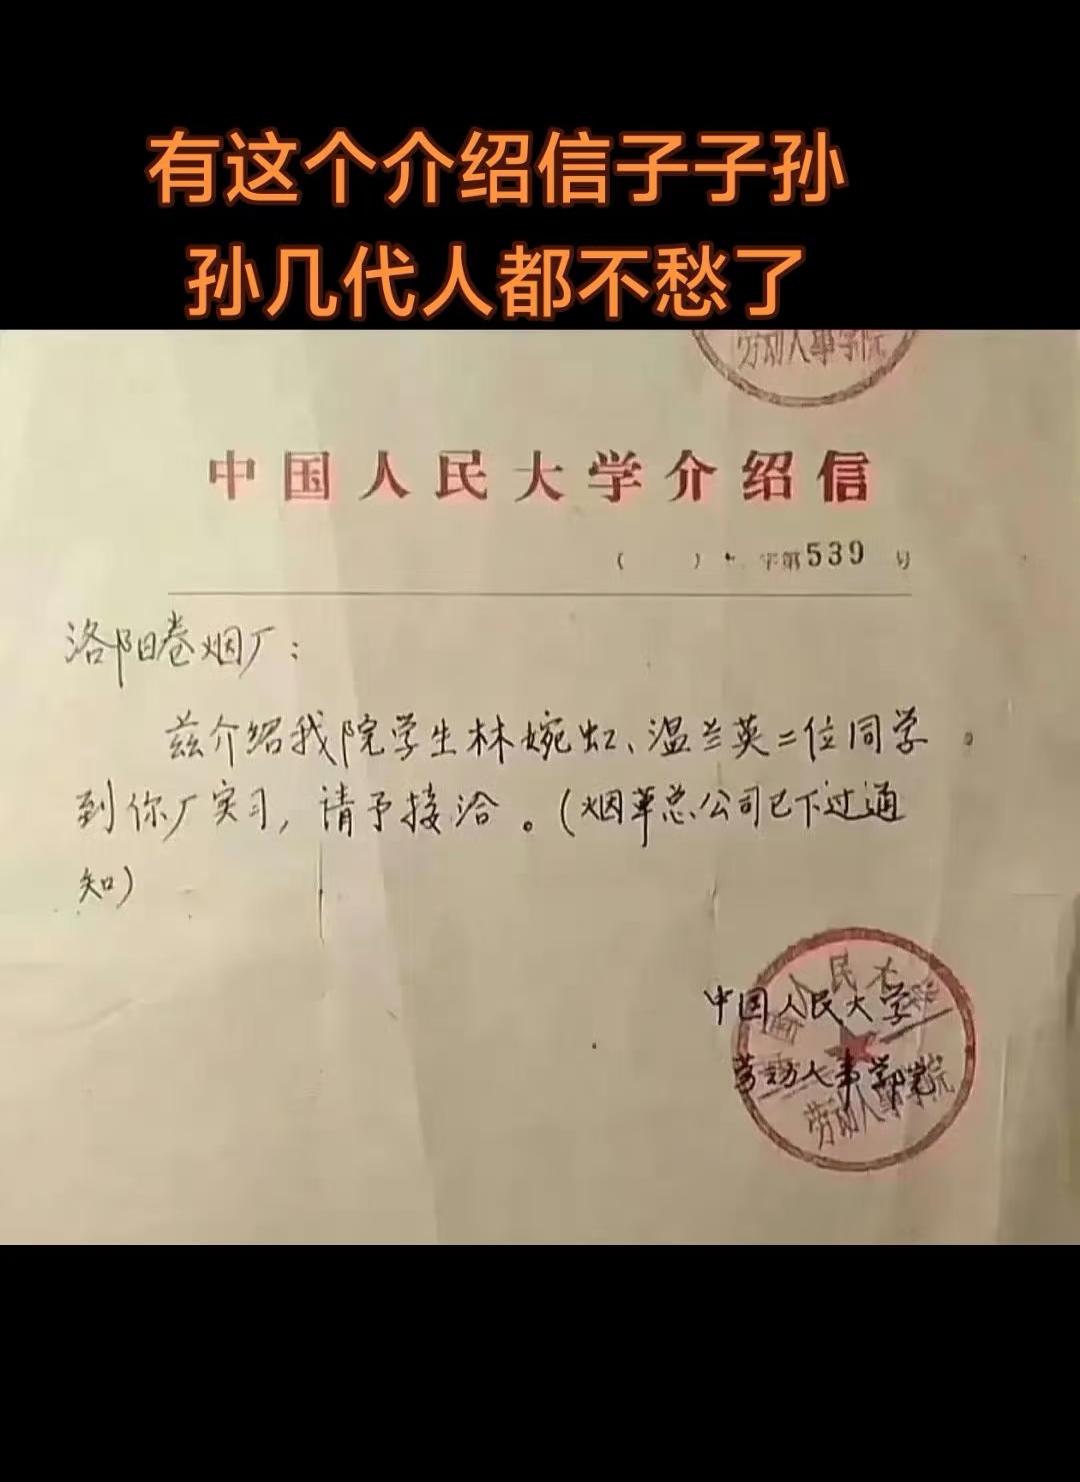 有这个介绍信子子孙
孙几代人都不愁了
劳动人事学院
中国人民大学介绍信
( ) 字第539号
洛阳卷烟厂：
兹介绍我院学生林婉虹、温兰英二位同学
到你厂实习，请予接洽。(烟草总公司已下过通
知)
中国人民大学
劳动人事学院
人民大
劳动人事学院